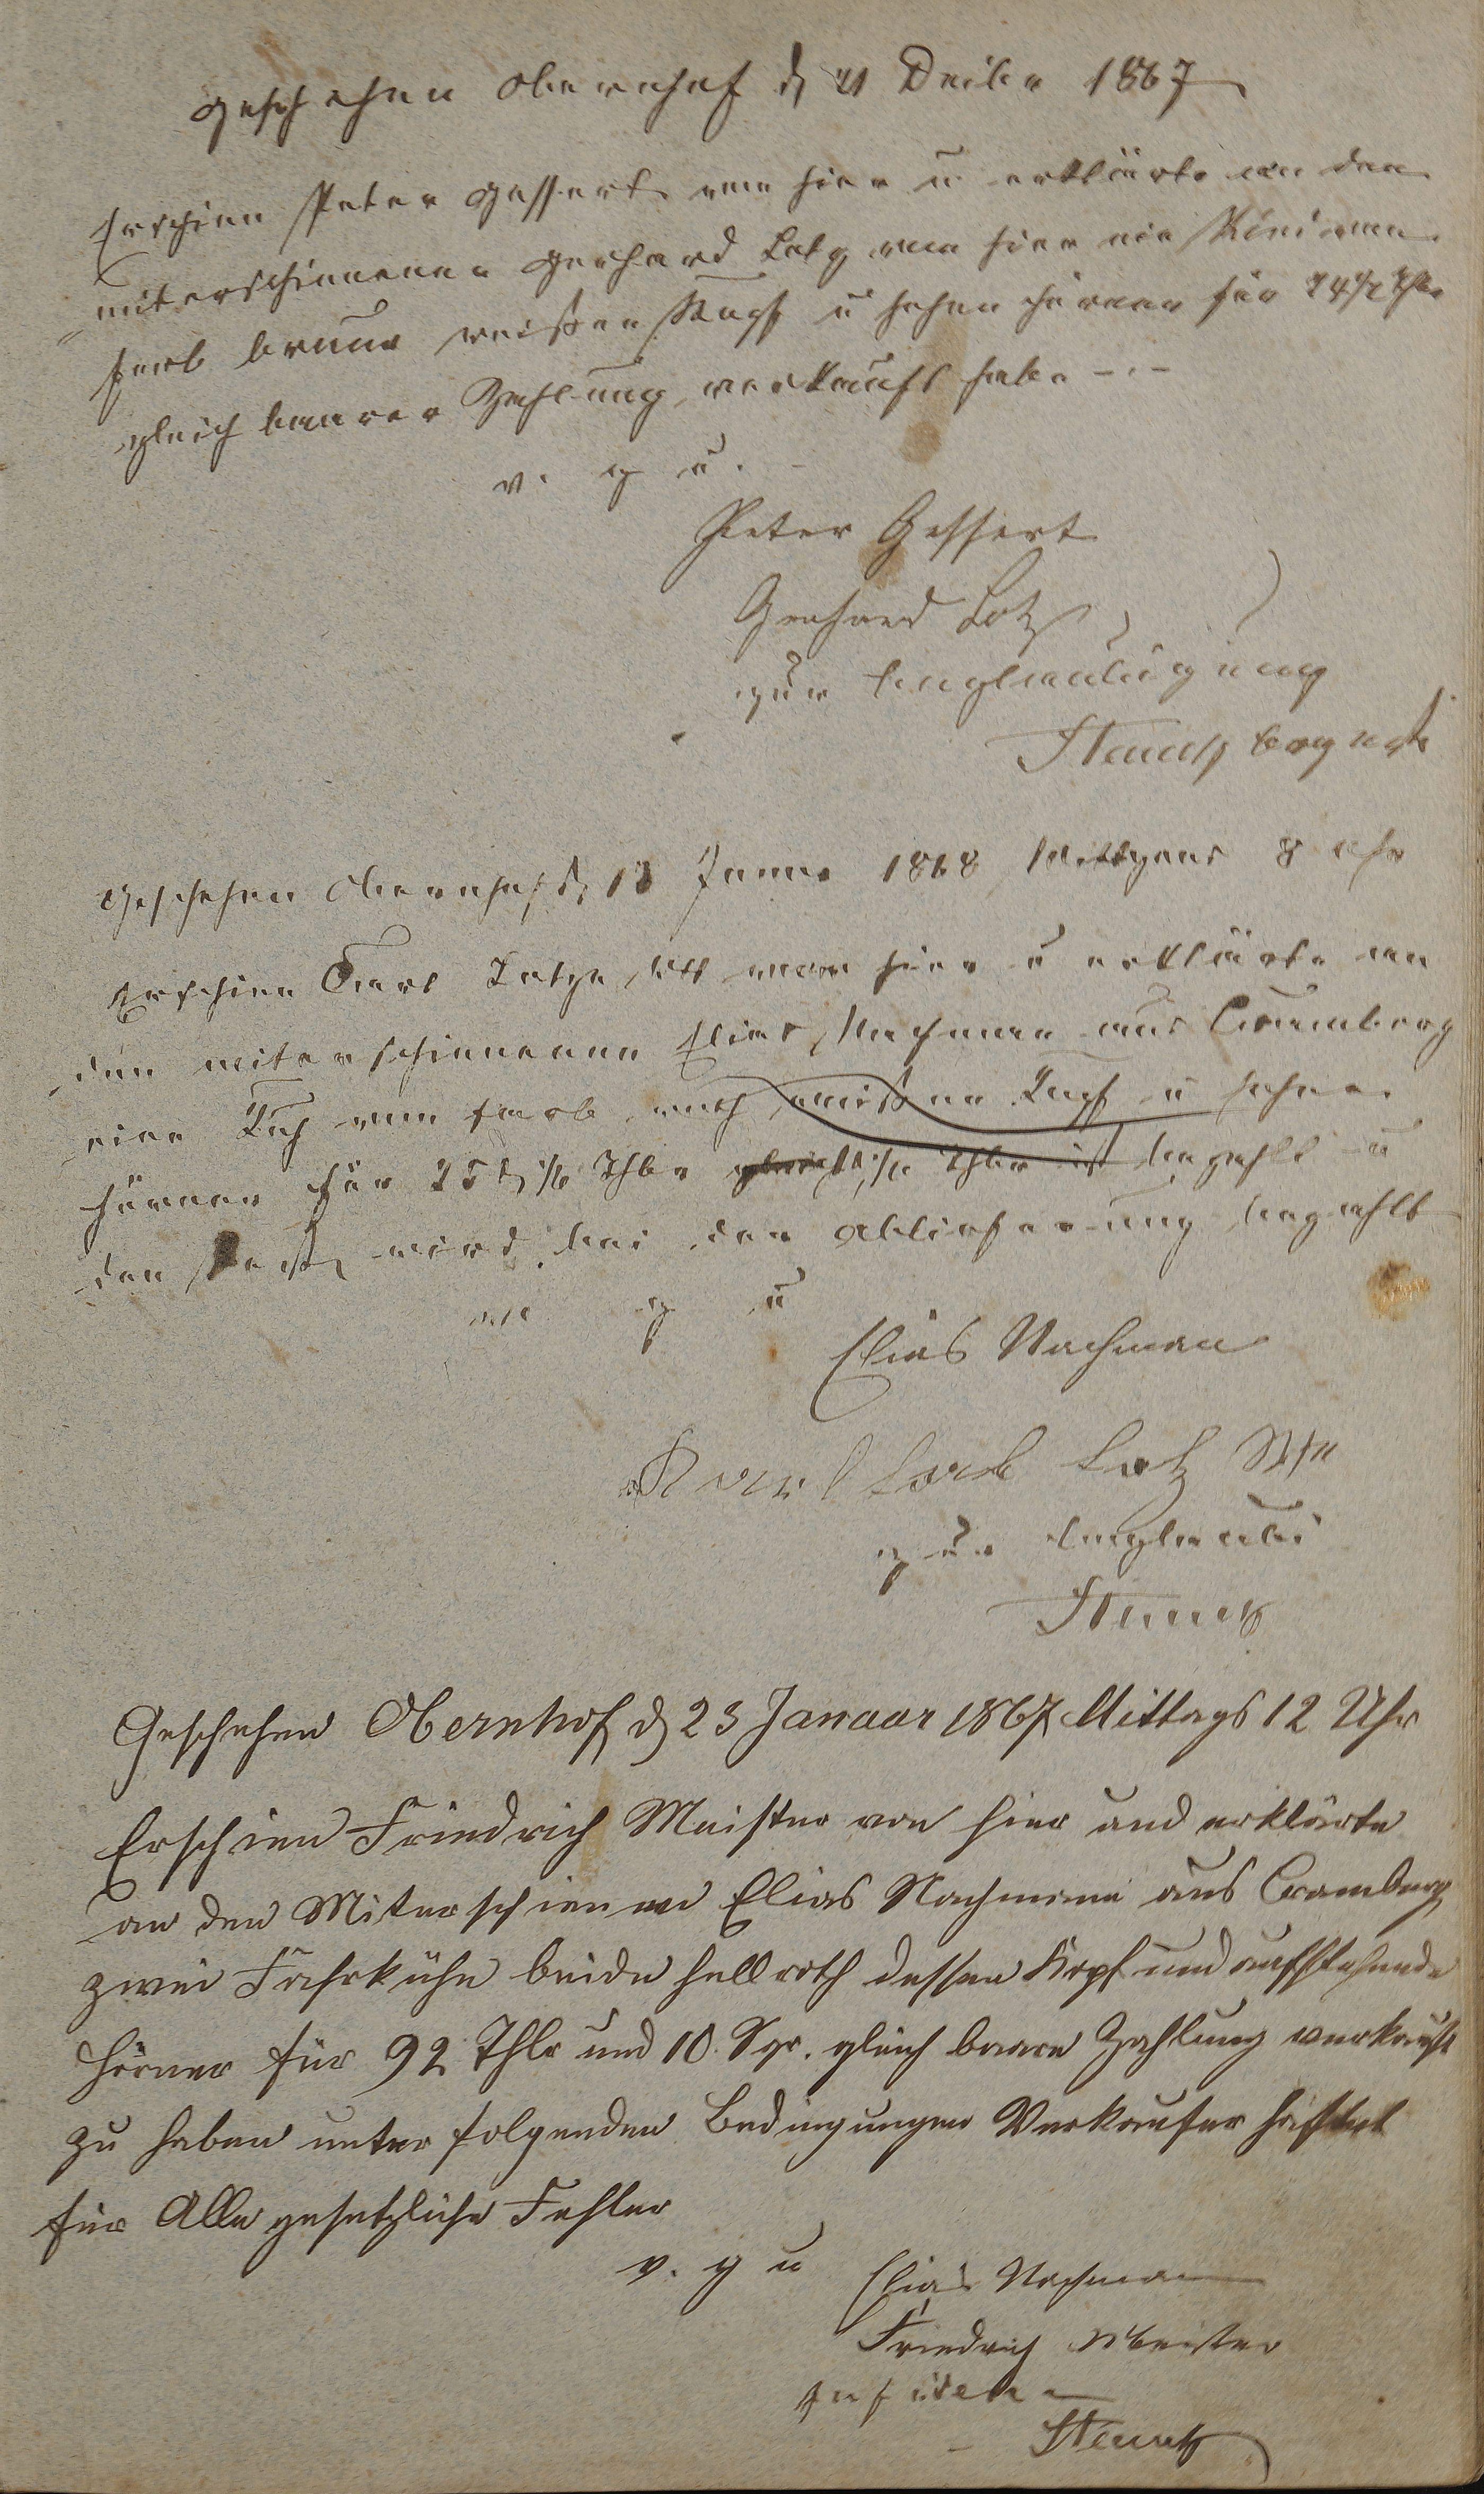 Geschehen Obernhof d 21 Decbr 1867
Erschien Peter Gessert von hier u erklärte an den
miterschienenen Gerhard Lotz von hier ein Rind von
Farb braun weißen Kopf u hohen Hörner für 24½ Thlr
gleich baarer Zahlung verkauft habe -.-
v. g. u.
Peter Gessert
Gerhard Lotz
zur Beglaubigung
Geschehen Obernhof d 13 Januar 1868 Mittgens 8 Uhr
Erschien Carl Lotz von hier u erklärte an
den miterschienenen Elias Nachmann aus Cramberg
eine Kuh von Farb roth weißen Kopf u hohen
Hörner für Thlr Thlr ist bezahlt u
den Rest wird bei der Ablieferung bezahlt
v g u
Elias Nachman
Karl Lotz
zur Beglaubi
Geschehen Obernhof d 23 Januar 1867 Mittags 12 Uhr
Erschien Friedrich Meister von hier und erklärte
an den Miterschienen Elias Nachmann aus Cramberg
zwei Fahrkühe beide hellroth dessen Kopf und aufstehende
Hörner für 92 Thlr und 10 Sgr. gleich baare Zahlung verkauft
zu haben unter folgenden Bedingungen Verkaufer haftet
für Alle gesetzliche Fehler
v. g u
Elias Nachman
Friedrich Meister